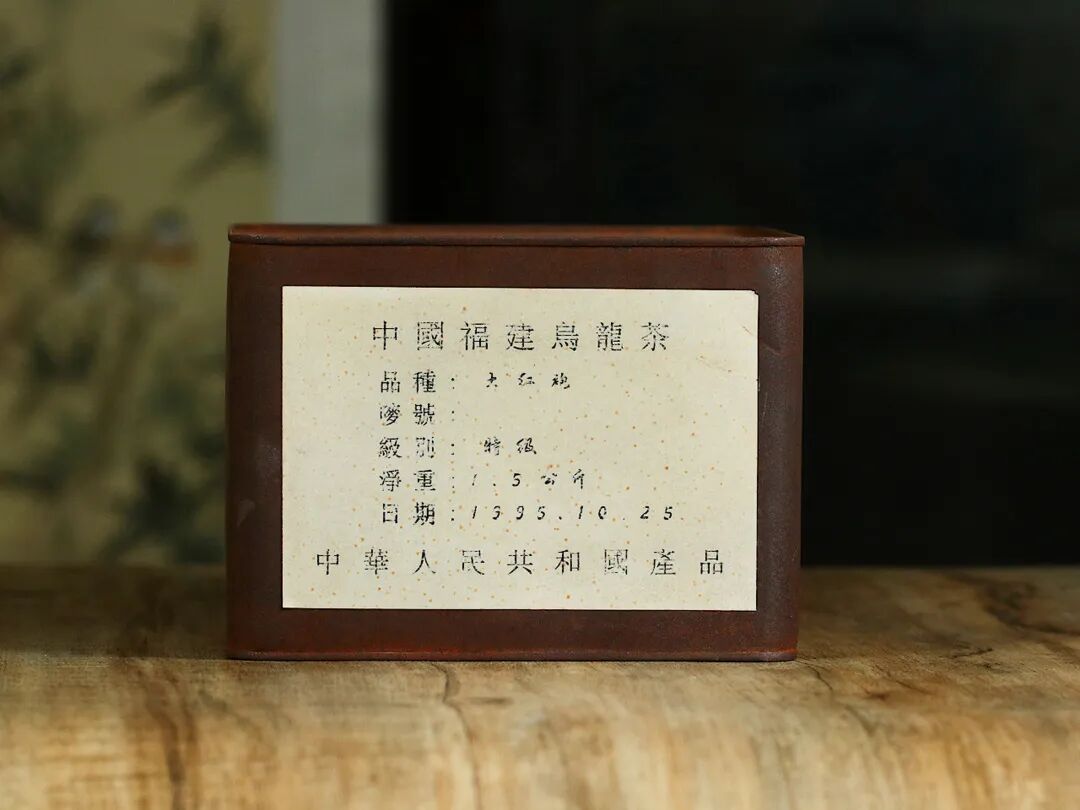 中國福建烏龍茶
品種：大红袍
嘜號：
級別：特级
淨重：1.5公斤
日期：1995.10.25
中華人民共和國產品